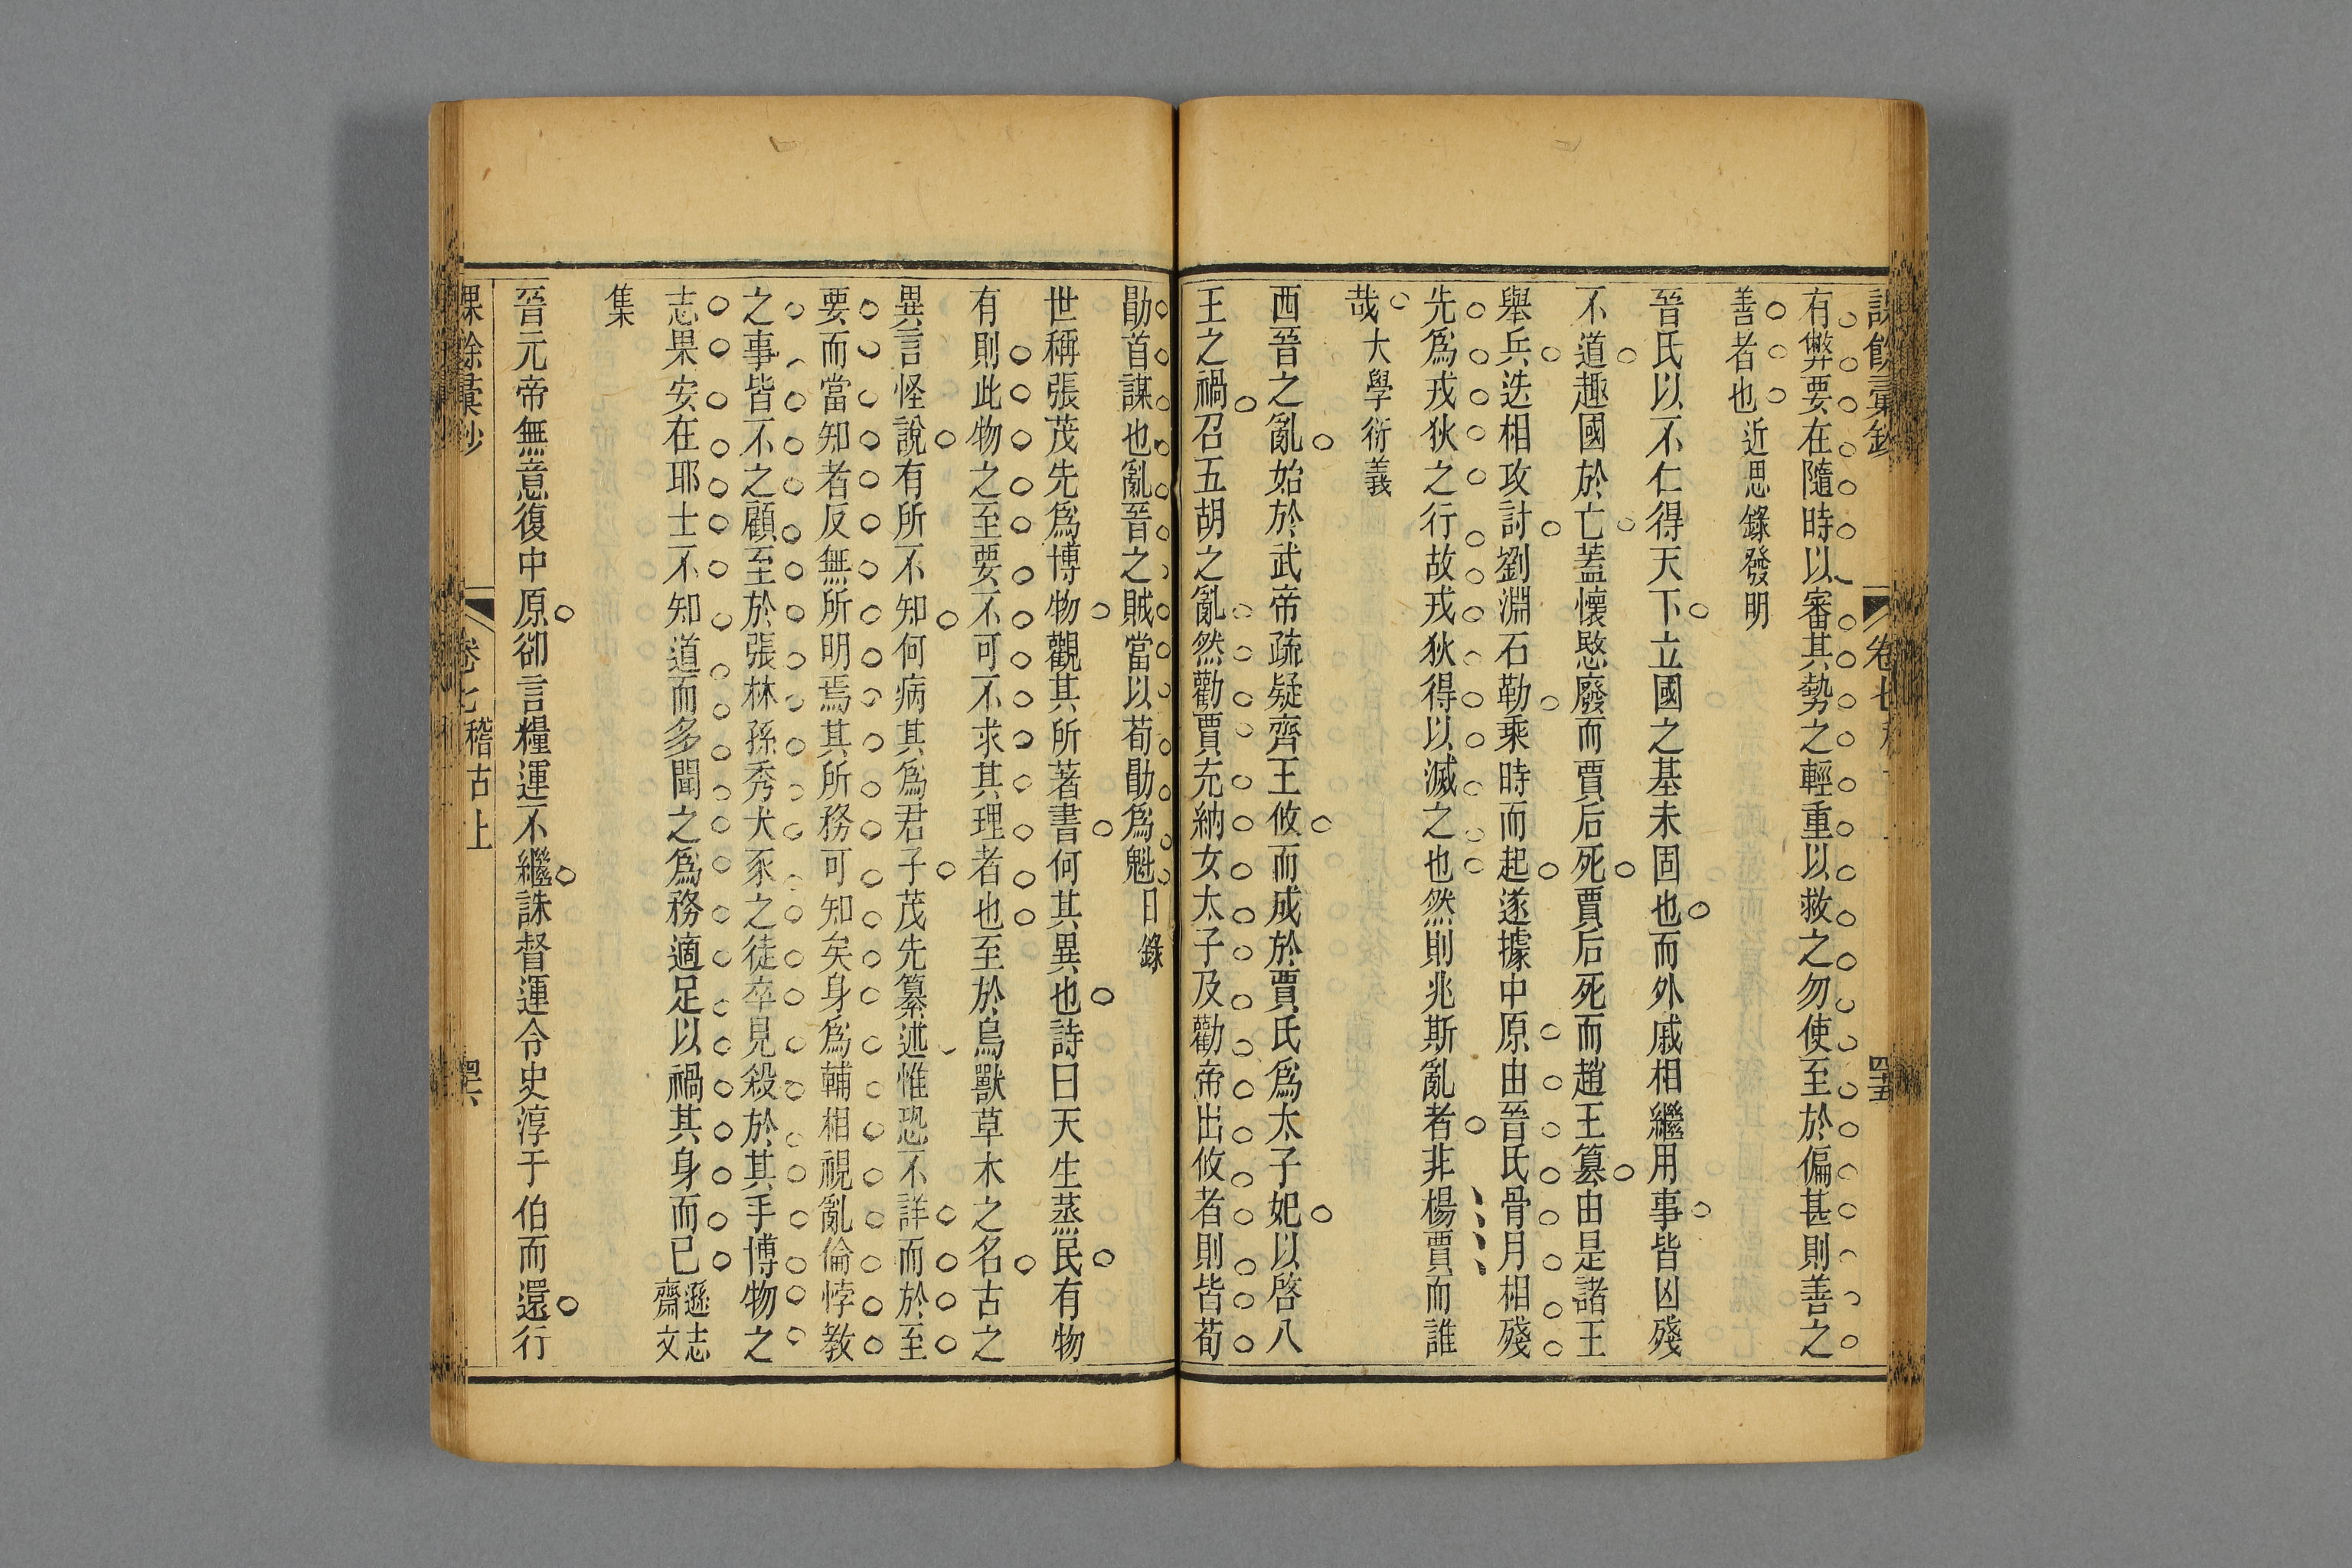 課餘彙鈔 卷七 四十五
有弊要在隨時以審其勢之輕重以救之勿使至於偏甚則善之
善者也近思錄發明
晉氏以不仁得天下立國之基未固也而外戚相繼用事皆凶殘
不道趣國於亡蓋懷愍廢而賈后死賈后死而趙王簒由是諸王
舉兵迭相攻討劉淵石勒乘時而起遂據中原由晉氏骨月相殘
先爲戎狄之行故戎狄得以滅之也然則兆斯亂者非楊賈而誰
哉大學衍義
西晉之亂始於武帝疏疑齊王攸而成於賈氏爲太子妃以啓八
王之禍召五胡之亂然勸賈充納女太子及勸帝出攸者則皆荀
勖首謀也亂晉之賊當以荀勖爲魁日錄
世稱張茂先爲博物觀其所著書何其異也詩曰天生蒸民有物
有則此物之至要不可不求其理者也至於鳥獸草木之名古之
異言怪說有所不知何病其爲君子茂先纂述惟恐不詳而於至
要而當知者反無所明焉其所務可知矣身爲輔相視亂倫悖教
之事皆不之顧至於張林孫秀犬豕之徒卒見殺於其手博物之
志果安在耶士不知道而多聞之爲務適足以禍其身而已遜志齋文
集
晉元帝無意復中原卻言糧運不繼誅督運令史淳于伯而還行
課餘彙鈔 卷七 稽古上 四十六